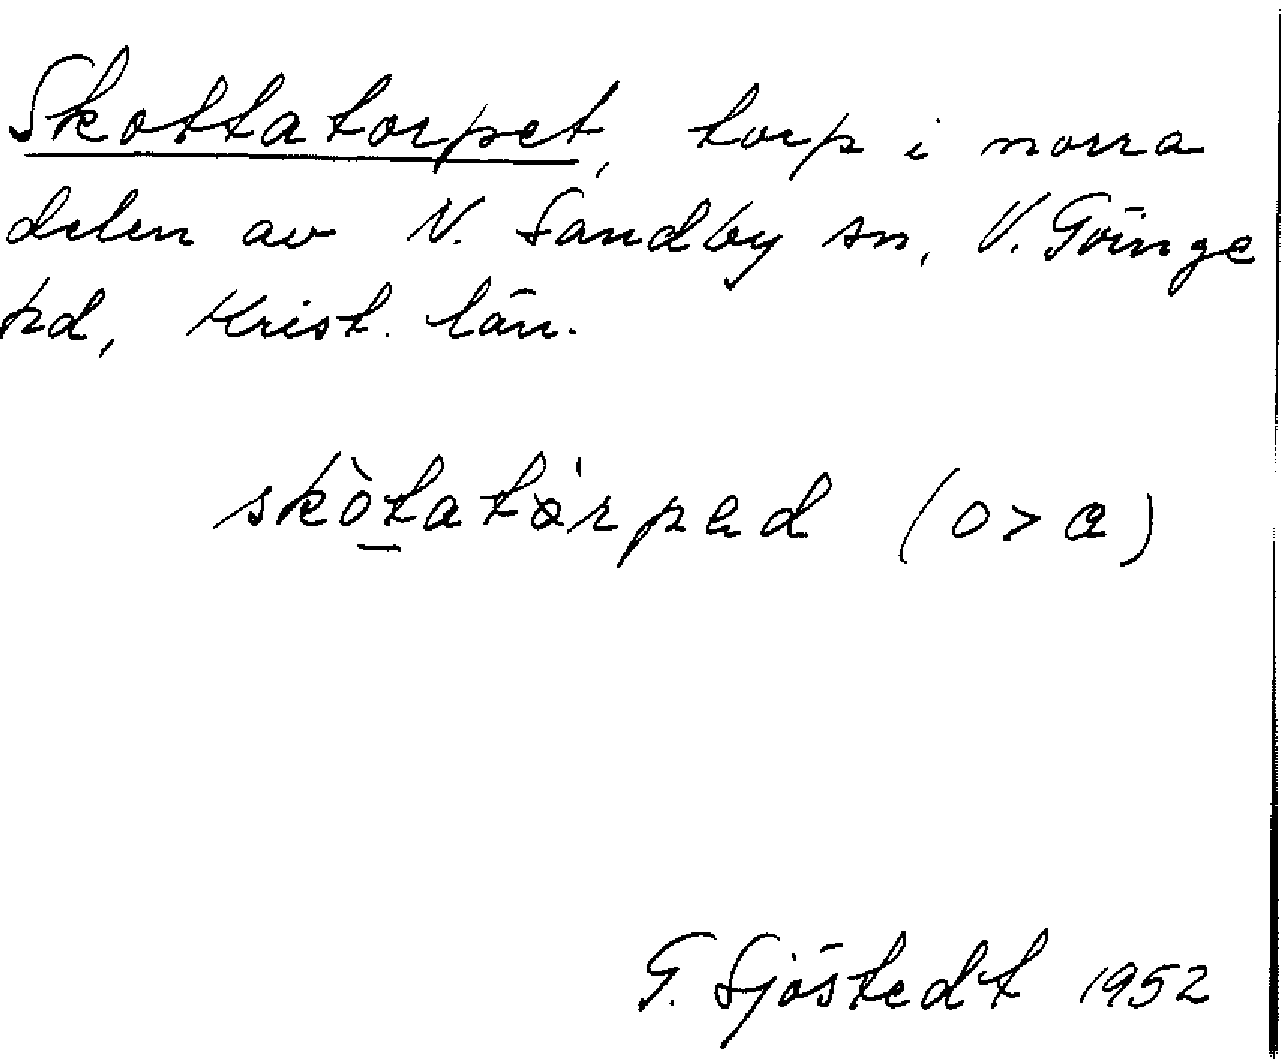 Skottatorpet, torp i norra
delen av N. Sandby sn, V. Göinge
hd, Krist. län.
skòtatårpəd (o>a)
G. Sjöstedt 1952